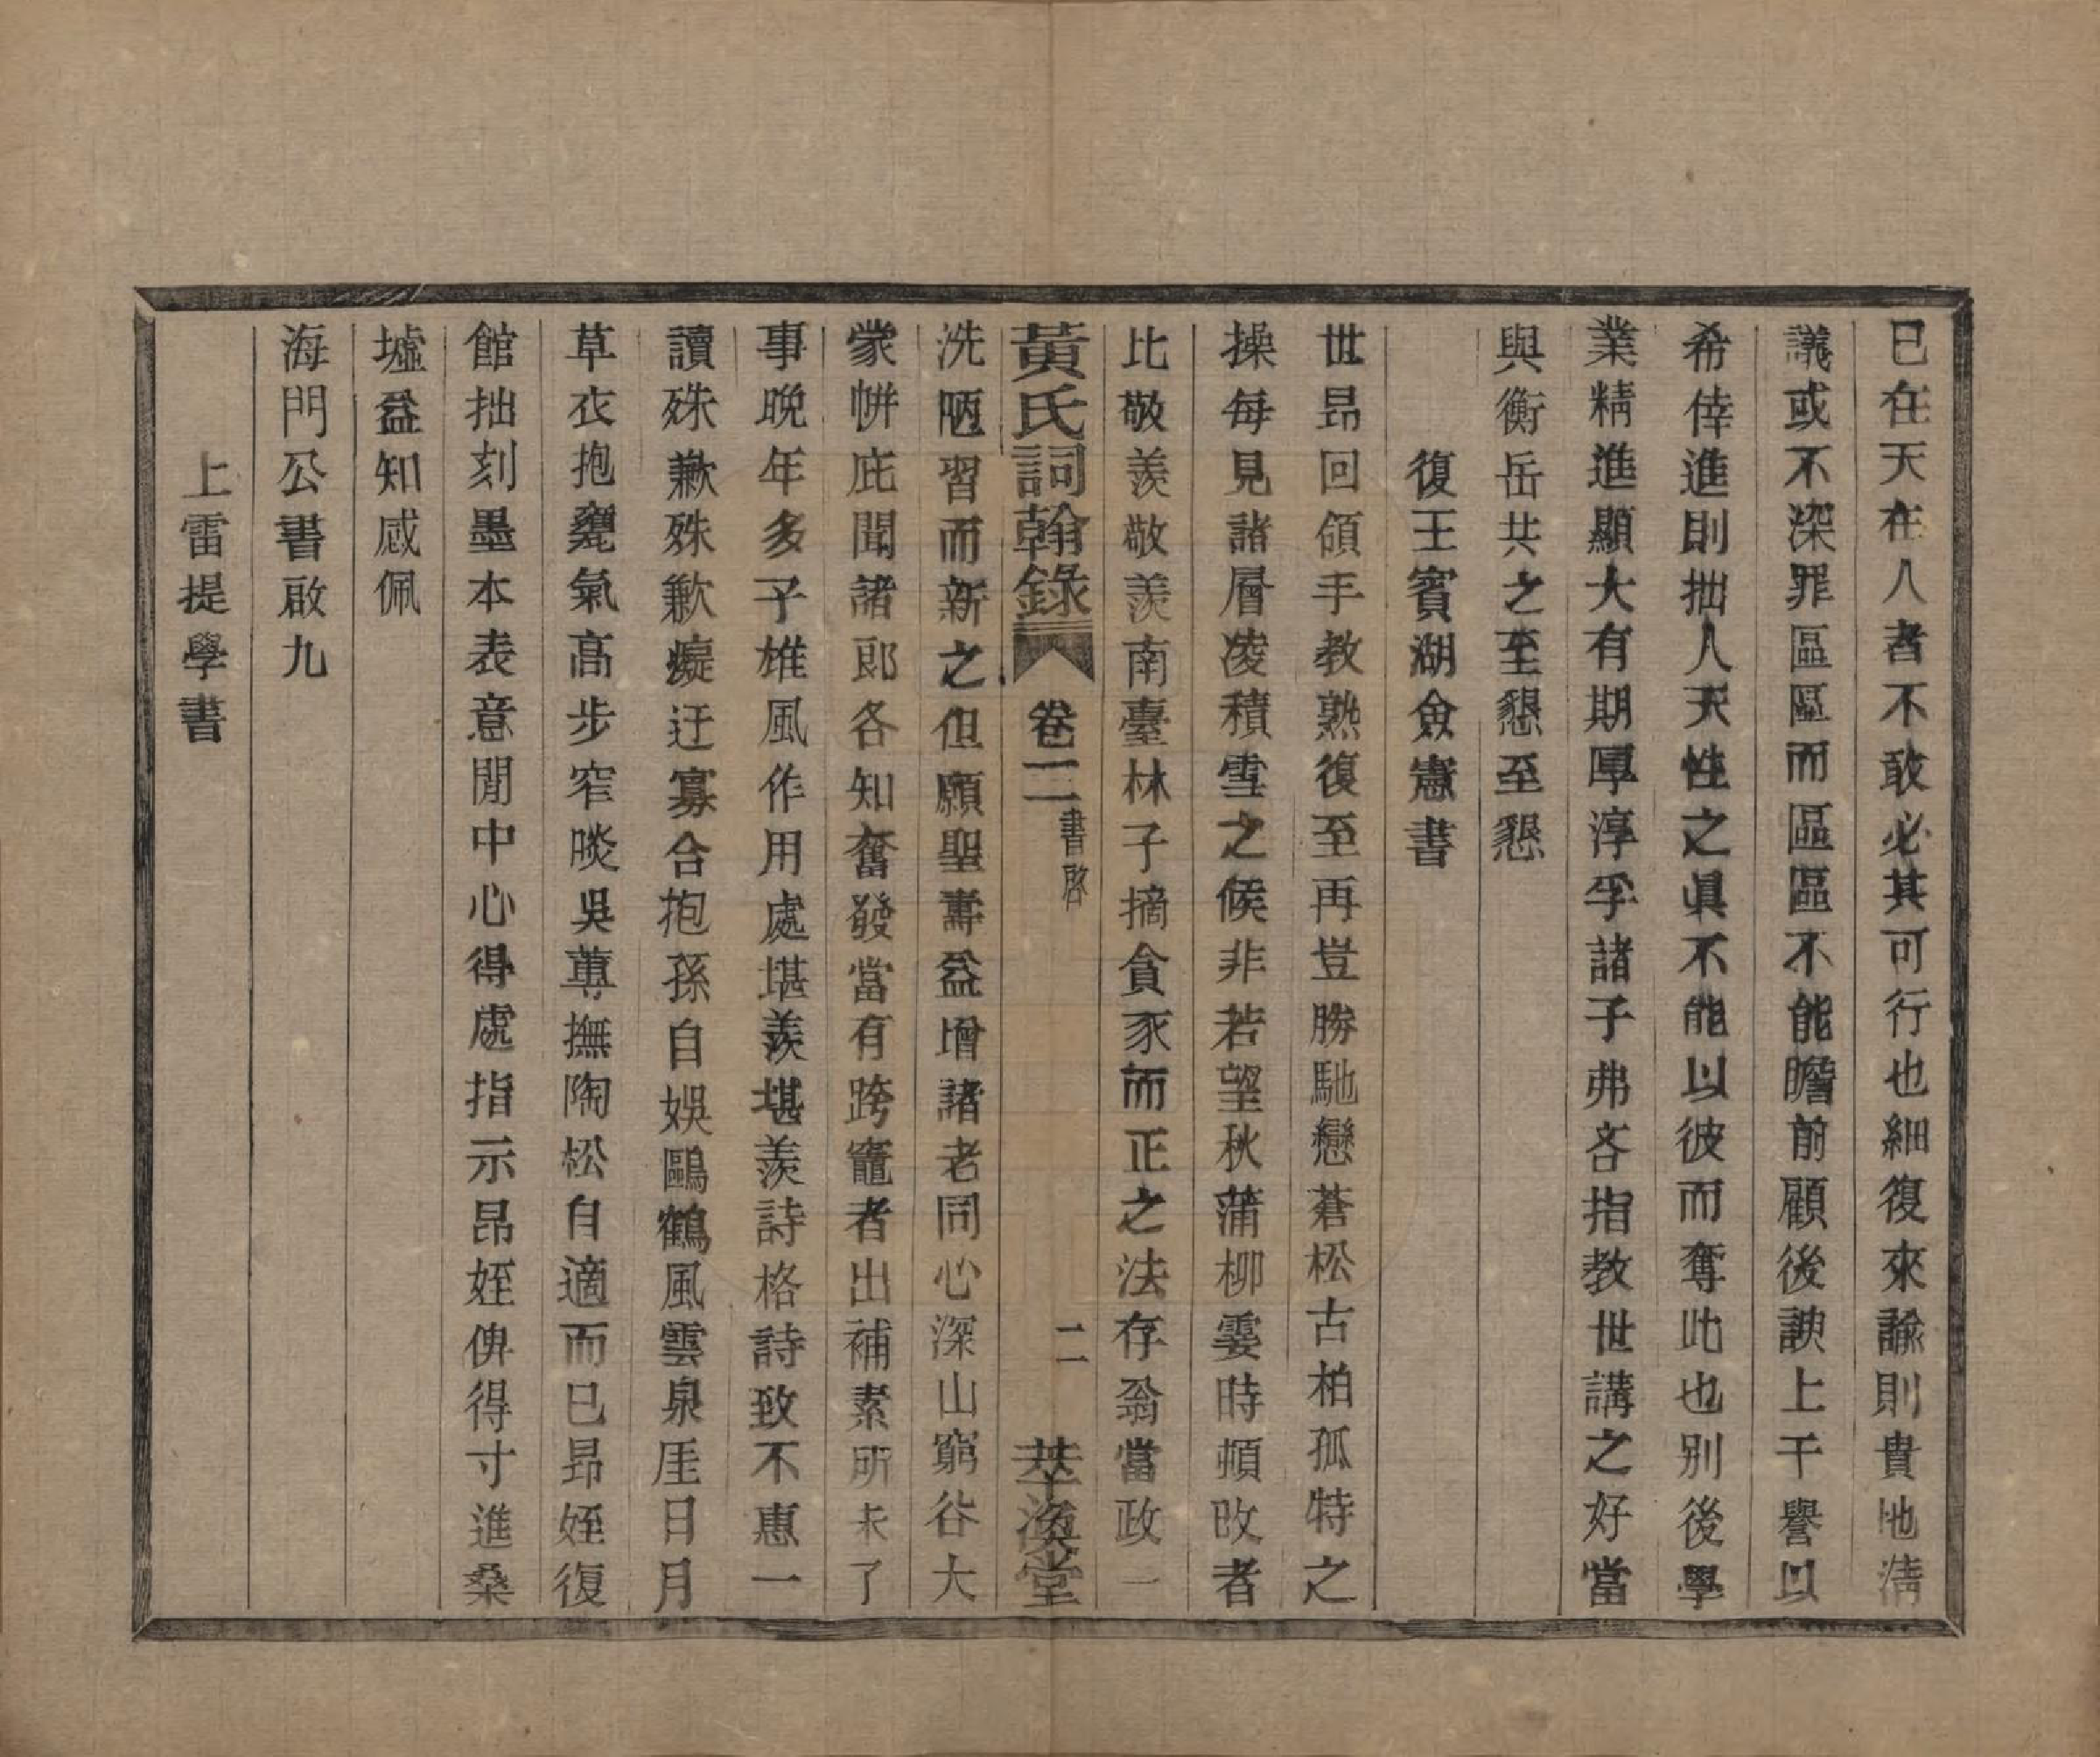 已在天在人者不敢必其可行也細復來諭則貴地淸
議或不深罪區區而區區不能瞻前顧後諛上干譽以
希倖進則拙人天性之眞不能以彼而奪此也别後學
業精進顯大有期厚淳孚諸子弗吝指教世講之好當
與衡岳共之至懇至懇
復王賓湖僉憲書
世昂回領手教熟復至再豈勝馳戀蒼松古柏孤特之
操每見諸層凌積雪之候非若望秋蒲柳霎時頓改者
比敬羡敬羡南臺林子摘貪豕而正之法存翁當政一
黃氏詞翰錄
卷二
書啓
二
萃渙堂
洗陋習而新之但願聖壽益增諸老同心深山窮谷大
蒙帡庇聞諸郎各知奮發當有跨竈者出補素所未了
事晚年多子雄風作用處堪羡堪羡詩格詩致不惠一
讀殊歉殊歉癡迂寡合抱孫自娛鷗鶴風雲泉厓日月
草衣抱甕氣高步窄啖吳蓴撫陶松自適而已昂姪復
館拙刻墨本表意閒中心得處指示昂姪俾得寸進桑
墟益知感佩
海門公書啟九
上雷提學書